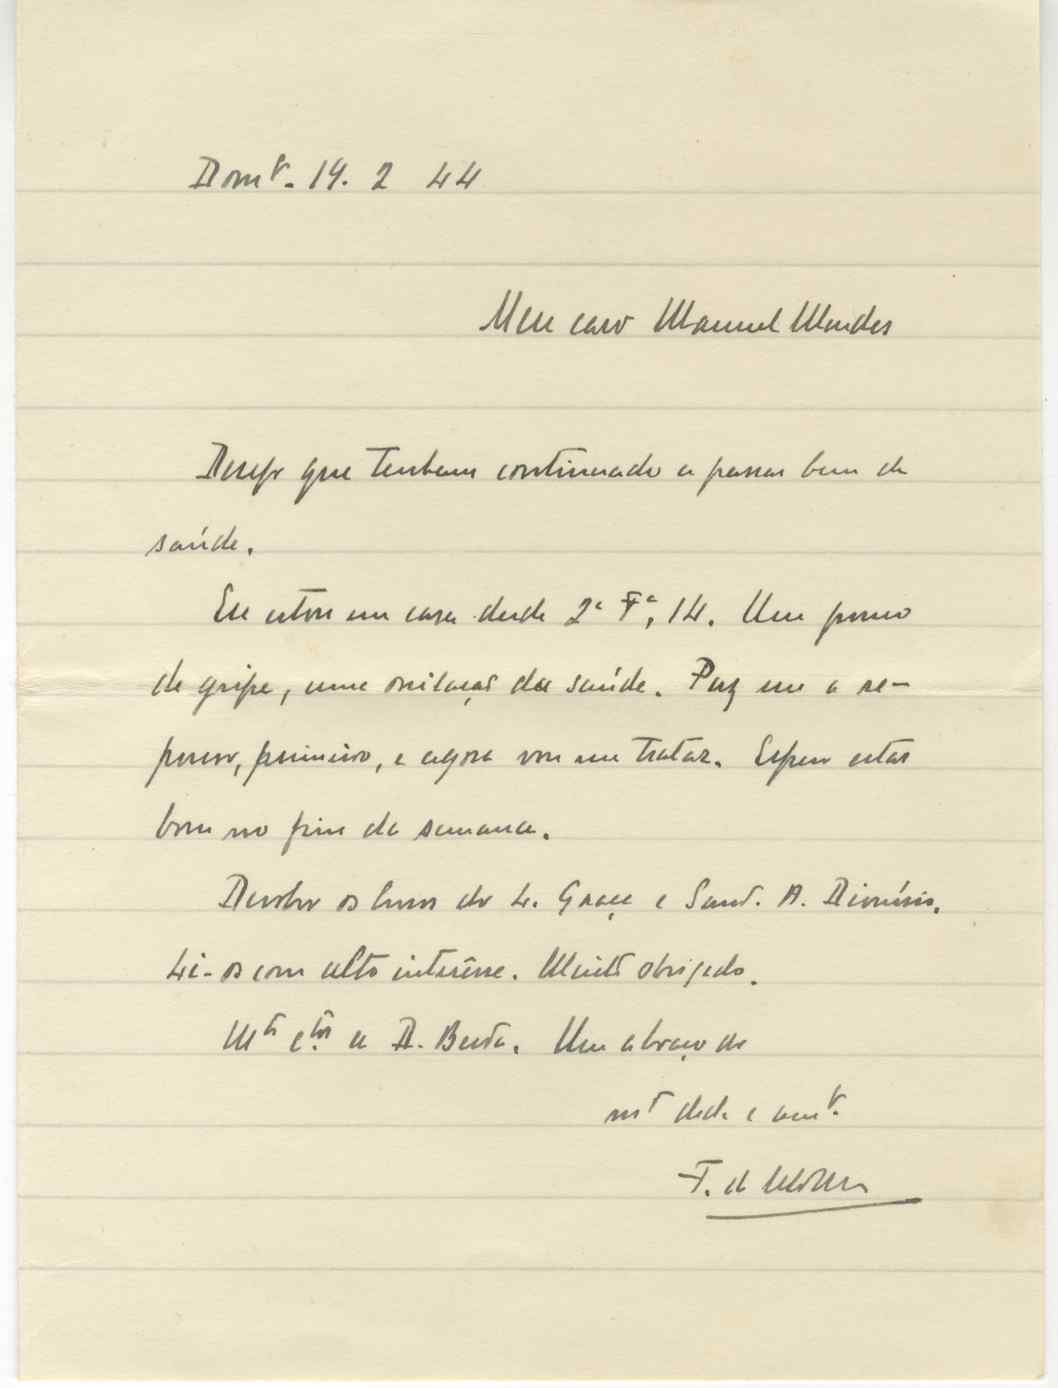 Dom.º 19. 2 44
Meu caro Manuel Mendes
Desejo que tenham continuado a passar bem de
saúde.
Eu estou em casa desde 2ª Fª, 14. Um pouco
de gripe, uma oscilação da saúde. Puz-me a re-
pouso, primeiro, e agora vou me tratar. Espero estar
bom no fim da semana.
Devolvo os livros do L. Graça e Sant. A. Dionísio.
Li-os com alto interêsse. Muito obrigado.
Mtos ctos. a D. Berta. Um abraço do
mt dedo e amº.
F. de